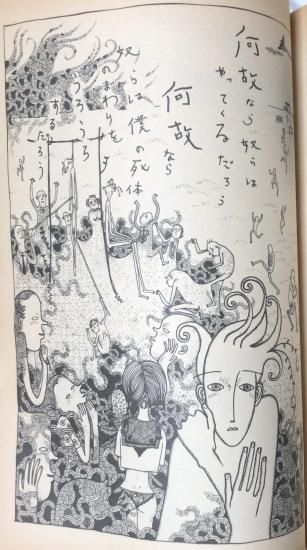 何故なら奴らは
やってくるだろう
何故なら
奴らは僕の死体
のまわりを
うろうろ
するだろう